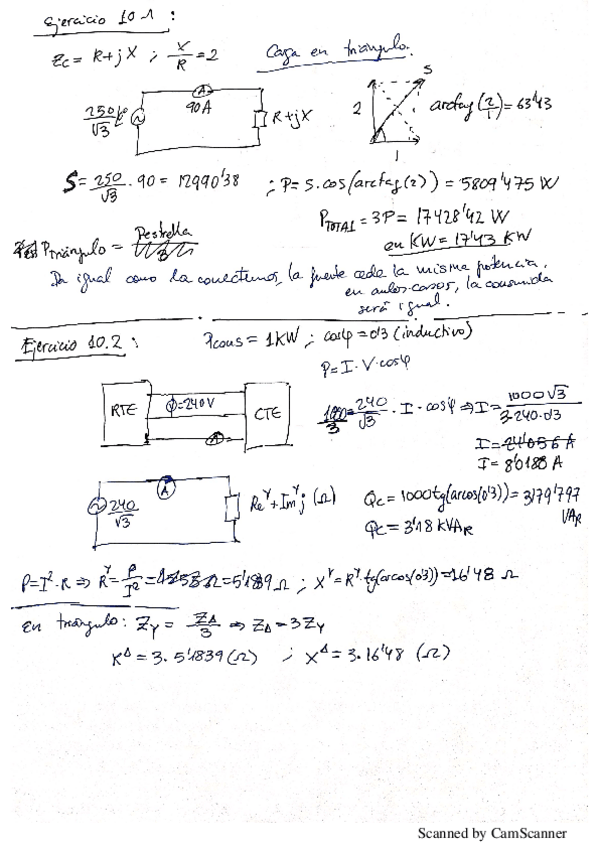 Ejercicio 10.1 :
Zc = R+jX ; X/R = 2
Carga en triángulo.
250/√3
A
90A
R+jX
2
1
S
arctag(2/1) = 63'43
S = 250/√3 . 90 = 12990'38 ; P = S.cos(arctag(2)) = 5809'475 W
PTOTAL = 3P = 17428'42 W
en KW = 17'43 KW
Ptriángulo = Pestrella
Da igual como la conectemos, la fuente cede la misma potencia,
en ambos casos, la consumida
será igual.
Ejercicio 10.2 :
Pcons = 1KW ; cosφ = 0'3 (inductivo)
P = I · V · cosφ
RTE
V = 240V
A
CTE
1000/3 = 240/√3 · I · cosφ ⇒ I = 1000√3/3·240·0'3
I = 24'056 A
I = 8'0188 A
240/√3
A
Re^Y + Im^Y j (Ω)
Qc = 1000tg(arcos(0'3)) = 3179'797 VAR
Qc = 3'18 KVAR
P = I²·R ⇒ R^Y = P/I² = 5'1839 Ω ; X^Y = R^Y.tg(arcos(0'3)) = 16'48 Ω
En triángulo: ZY = ZΔ/3 ⇒ ZΔ = 3ZY
R^Δ = 3.5'1839 (Ω) ; X^Δ = 3.16'48 (Ω)
Scanned by CamScanner